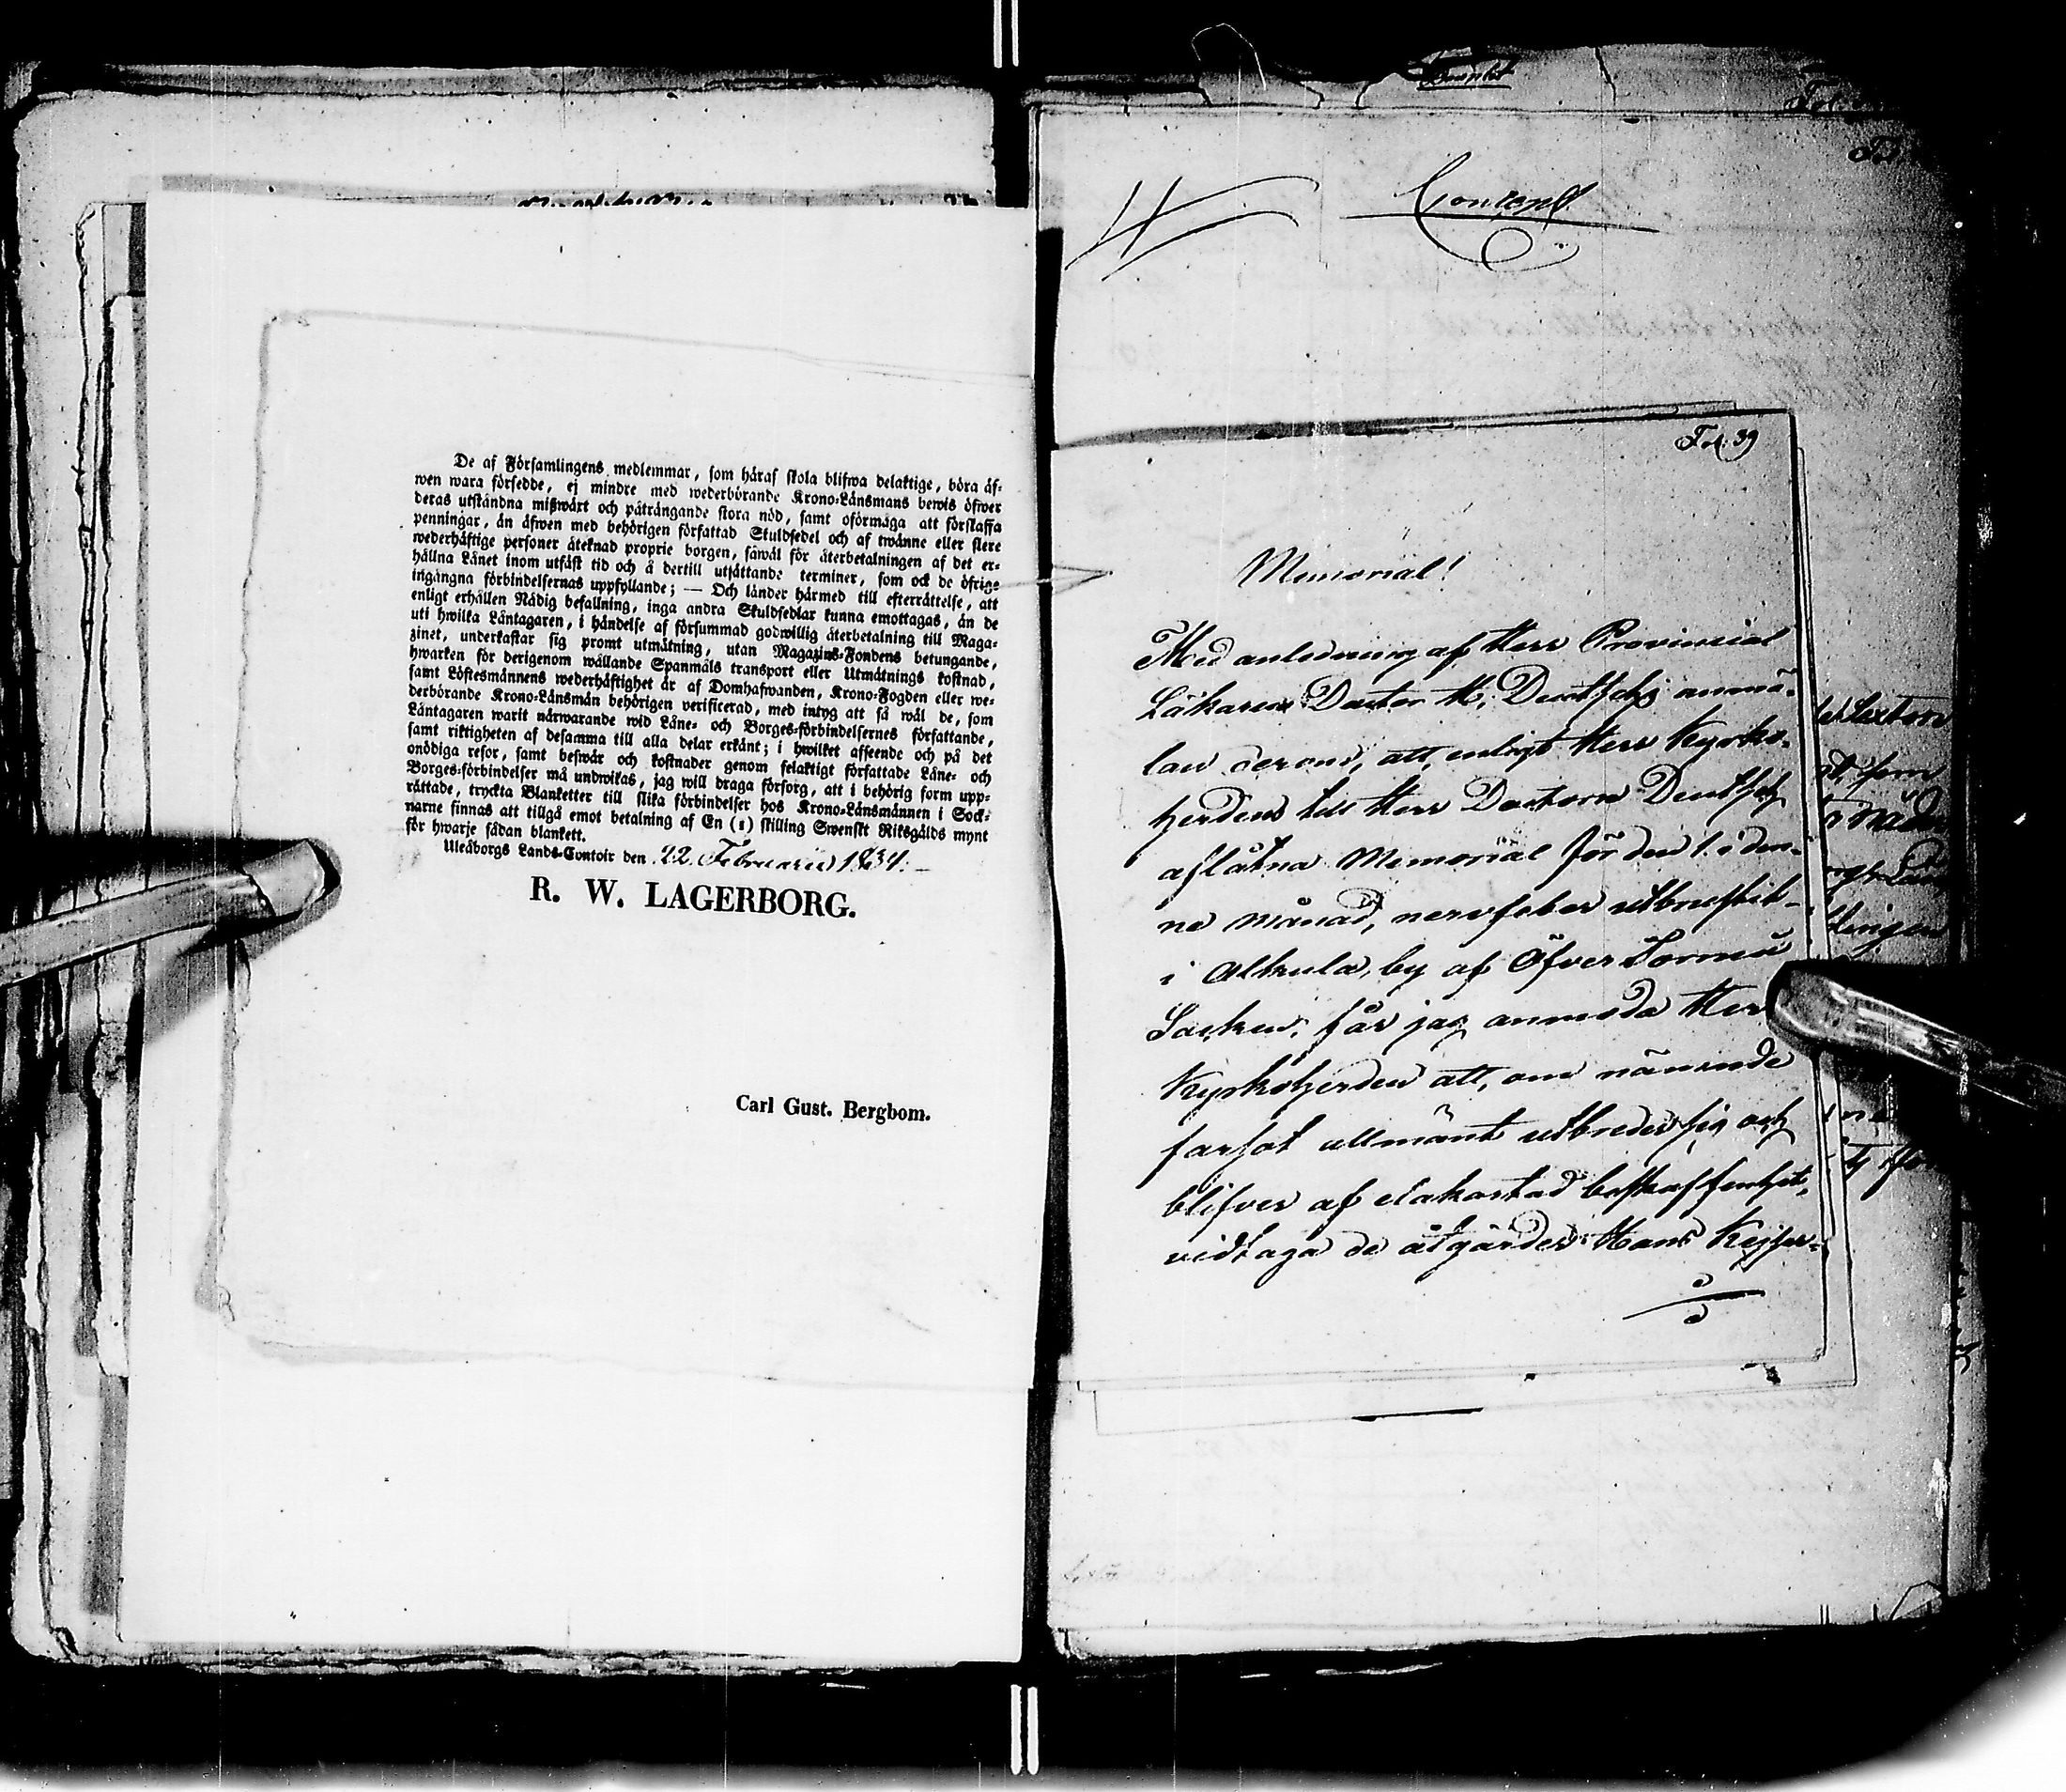 De af Församlingens medlemmar, som häraf skola blifwa delaktige, böra äf-
wen wara försedde, ej mindre med wederbörande Krono-Länsmans bewis öfwer
deras utståndna misswäxt och påträngande stora nöd, samt oförmåga att förskaffa
penningar, än äfwen med behörigen författad Skuldsedel och af twänne eller flere
wederhäftige personer åteknad proprie borgen, såwäl för återbetalningen af det er-
hållna Lånet inom utfäst tid och å dertill utsättande terminer, som ock de öfrige
ingångna förbindelsernas uppfyllande; — Och länder härmed till efterrättelse, att
enligt erhållen Nådig befallning, inga andra Skuldsedlar kunna emottagas, än de
uti hwilka Låntagaren, i händelse af försummad godwillig återbetalning till Maga-
zinet, underkastar sig promt utmätning, utan Magazins-Fondens betungande,
hwarken för derigenom wållande Spanmåls transport eller Utmätnings kostnad,
samt Löftesmännens wederhäftighet är af Domhafwanden, Krono-Fogden eller we-
derbörande Krono-Länsmän behörigen verificerad, med intyg att så wäl de, som
Låntagaren warit närwarande wid Låne- och Borges-förbindelsernes författande,
samt riktigheten af desamma till alla delar erkänt; i hwilket afseende och på det
onödiga resor, samt beswär och kostnader genom felaktigt författade Låne- och
Borges-förbindelser må undwikas, jag will draga försorg, att i behörig form upp-
rättade, tryckta Blanketter till slika förbindelser hos Krono-Länsmännen i Sock-
narne finnas att tillgå emot betalning af En (1) skilling Swenskt Riksgälds mynt
för hwarje sådan blankett.
Uleåborgs Lands-Contoir den 22 Februarii 1834.
R. W. LAGERBORG.
Carl Gust. Bergbom.
Fol: 39
Memorial!
Med anledning af Herr Provincial
Läkaren Doctor H. Deutschs anmä-
lan derom, att, enligt Herr Kyrko-
herdens till Herr Doctorn Deutsch
aflåtna Memorial för den 1. i den-
ne månad, nervfeber utbrustit
i Alkula by af Öfver Torneå
Socken, får jag anmoda Herr
Kyrkoherden att, om nämnde
farsot allmänt utbreder sig och
blifver af elakartad beskaffenhet,
vidtaga de åtgärder Hans Kejser-